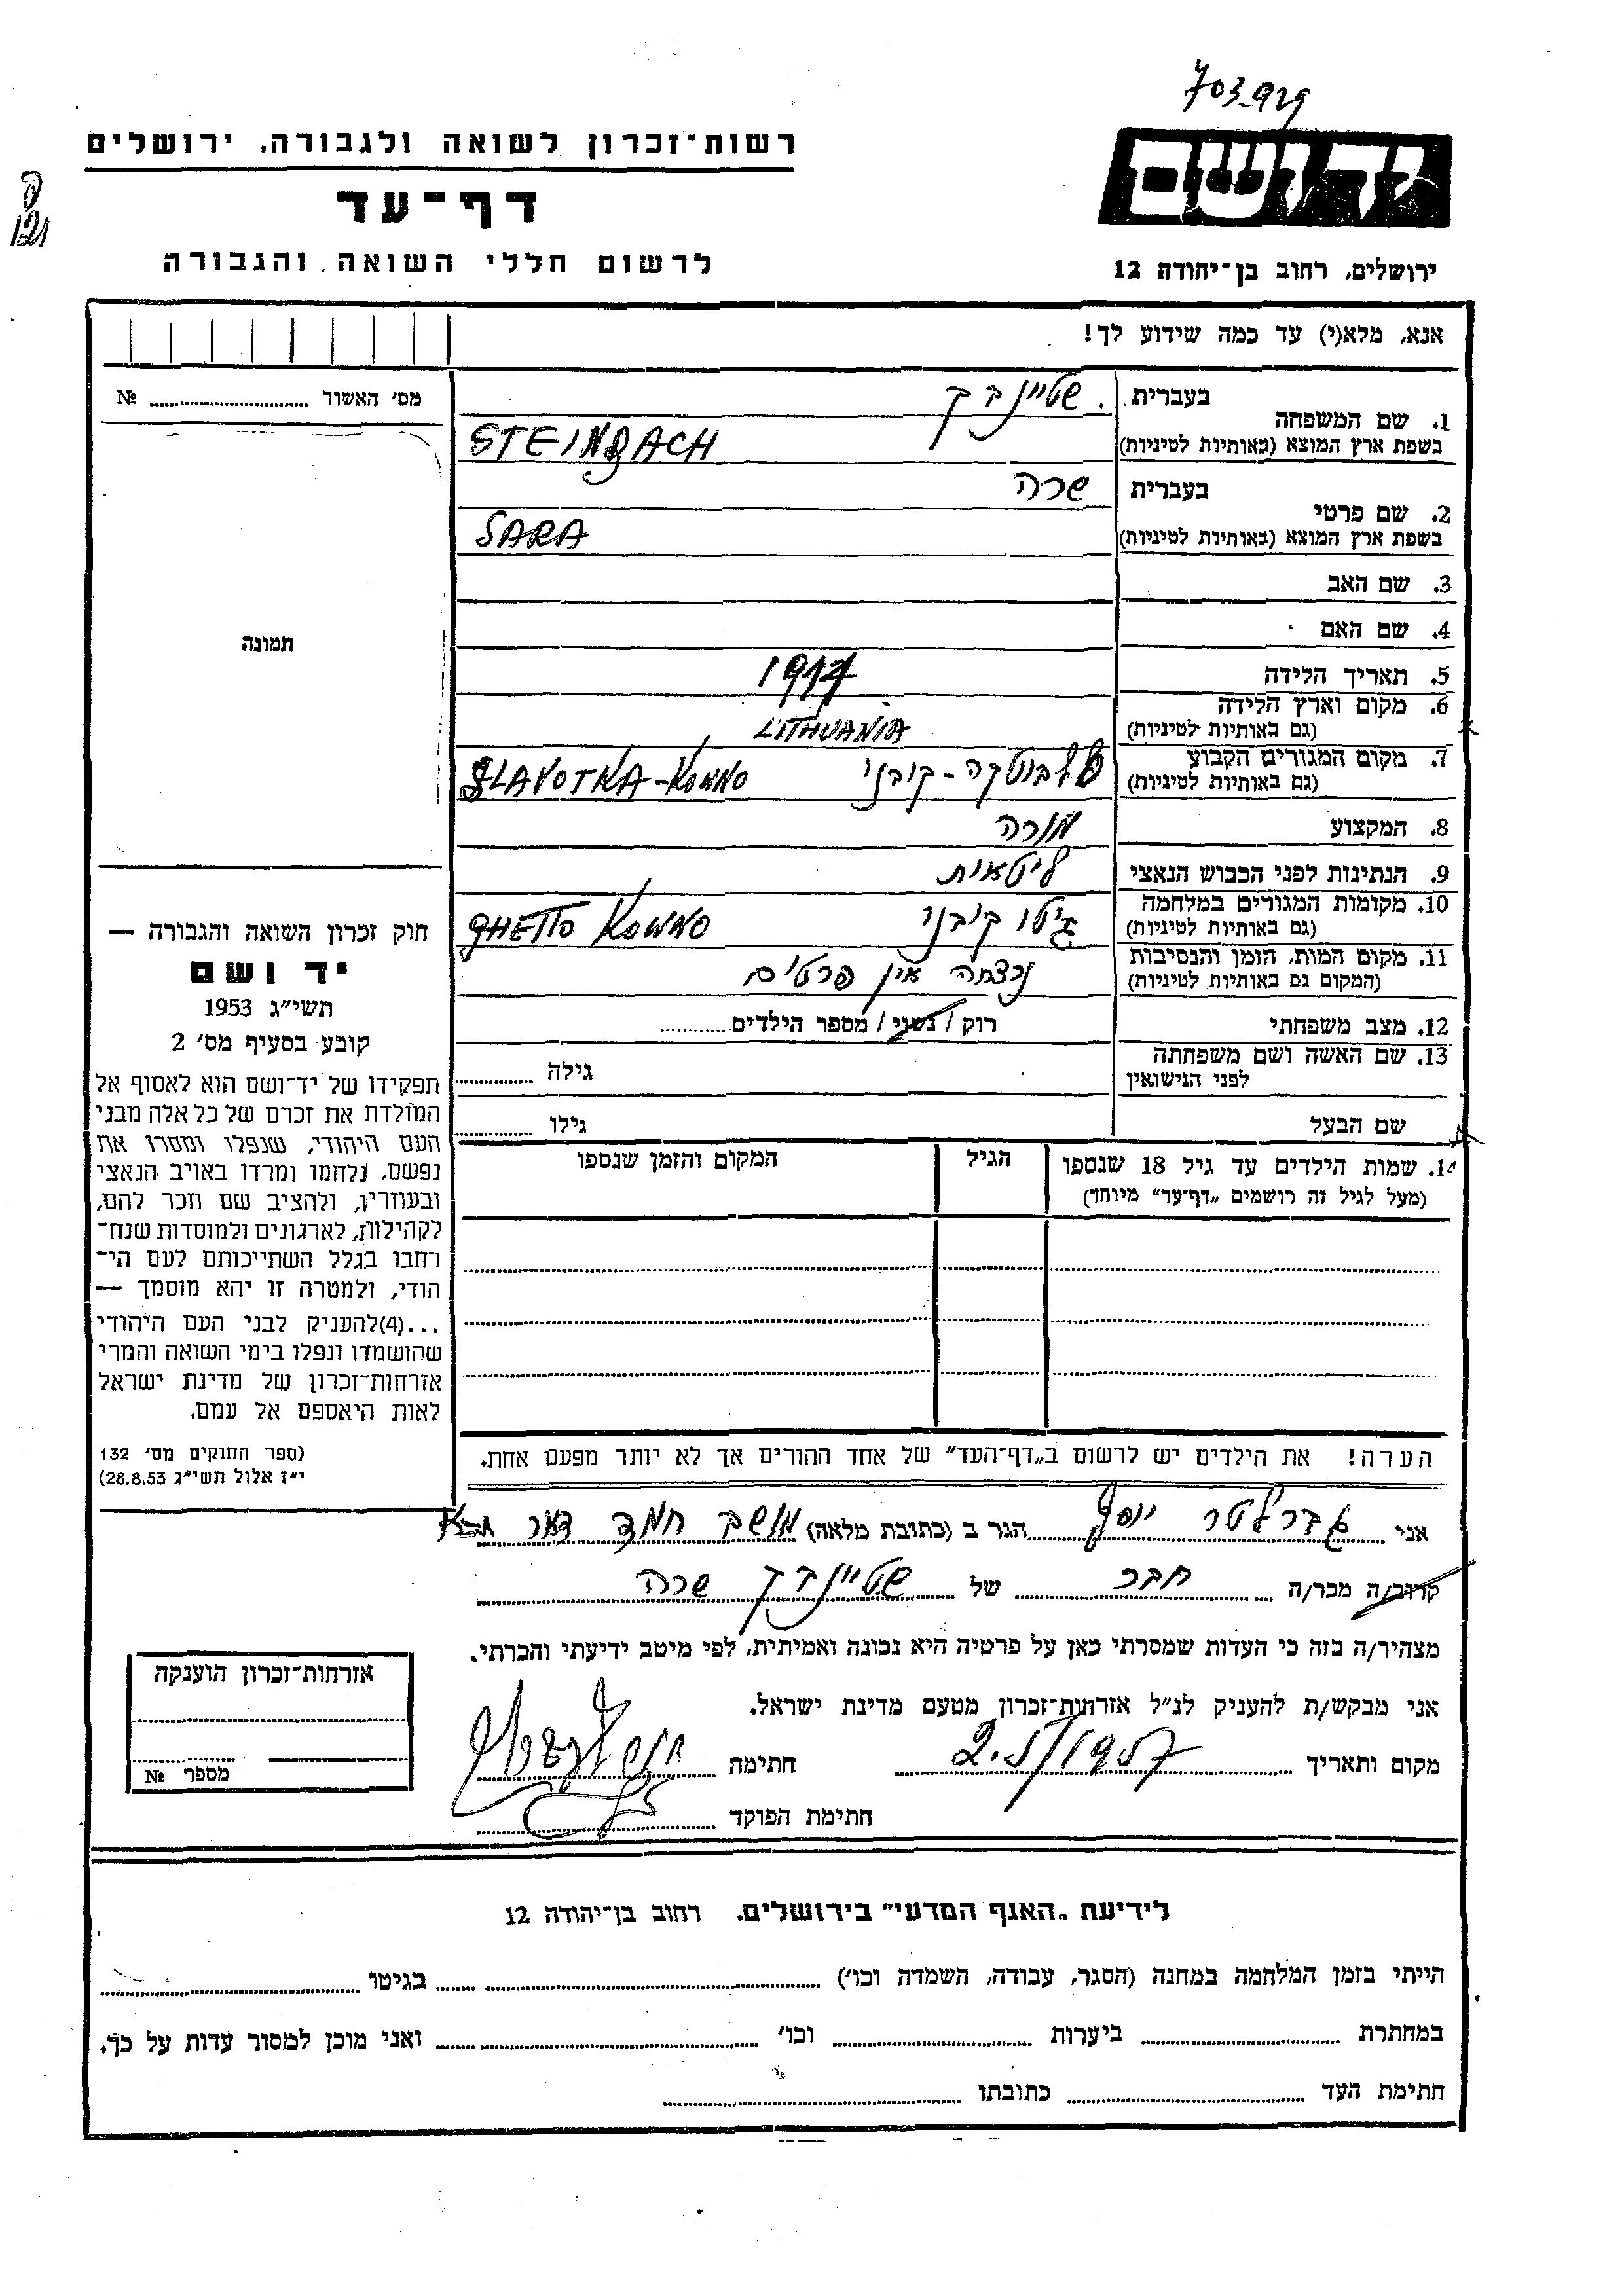 703.929
רשות־זכרון לשואה ולגבורה, ירושלים
דף־עד
לרשום חללי השואה והגבורה
ידושם
ירושלים, רחוב בן־יהודה 12
121
אנא, מלא(י) עד כמה שידוע לך!
מס׳ האשור № ..........
תמונה
1. שם המשפחה
בעברית שטיינבך
בשפת ארץ המוצא (באותיות לטיניות) STEINBACH
2. שם פרטי
בעברית שרה
בשפת ארץ המוצא (באותיות לטיניות) SARA
3. שם האב
4. שם האם
5. תאריך הלידה 1917
6. מקום וארץ הלידה
(גם באותיות לטיניות) LITHUANIA
7. מקום המגורים הקבוע
(גם באותיות לטיניות) סלבוטקה - קובנו SLAVOTKA - KOWNO
8. המקצוע מורה
9. הנתינות לפני הכבוש הנאצי ליטאית
10. מקומות המגורים במלחמה
(גם באותיות לטיניות) גיטו קובנו GHETTO KOWNO
11. מקום המות, הזמן והנסיבות
(המקום גם באותיות לטיניות) נרצחה אין פרטים
12. מצב משפחתי רוק / נשוי / מספר הילדים ..........
13. שם האשה ושם משפחתה
לפני הנישואין גילה ..........
שם הבעל גילו ..........
14. שמות הילדים עד גיל 18 שנספו
(מעל לגיל זה רושמים „דף־עד״ מיוחד)
הגיל
המקום והזמן שנספו
חוק זכרון השואה והגבורה —
יד ושם
תשי״ג 1953
קובע בסעיף מס׳ 2
תפקידו של יד־ושם הוא לאסוף אל
המולדת את זכרם של כל אלה מבני
העם היהודי, שנפלו ומסרו את
נפשם, נלחמו ומרדו באויב הנאצי
ובעוזריו, ולהציב שם וזכר להם,
לקהילות, לארגונים ולמוסדות שנח־
רחבו בגלל השתייכותם לעם הי־
הודי, ולמטרה זו יהא מוסמך —
...(4)להעניק לבני העם היהודי
שהושמדו ונפלו בימי השואה והמרי
אזרחות־זכרון של מדינת ישראל
לאות היאספם אל עמם.
(ספר החוקים מס׳ 132
י״ז אלול תשי״ג 28.8.53)
הערה! את הילדים יש לרשום ב„דף־העד״ של אחד ההורים אך לא יותר מפעם אחת.
אני גברלטר יוסף הגר ב (כתובת מלאה) מושב חמד
קרוב/ה מכר/ה חבר של שטיינבך שרה
מצהיר/ה בזה כי העדות שמסרתי כאן על פרטיה היא נכונה ואמיתית, לפי מיטב ידיעתי והכרתי.
אני מבקש/ת להעניק לנ״ל אזרחות־זכרון מטעם מדינת ישראל.
מקום ותאריך 2.5/1957 חתימה
חתימת הפוקד
אזרחות־זכרון הוענקה
מספר №
לידיעת „האגף המדעי״ בירושלים, רחוב בן־יהודה 12
הייתי בזמן המלחמה במחנה (הסגר, עבודה, השמדה וכו׳) .......... בגיטו ..........
במחתרת .......... ביערות .......... וכו׳ .......... ואני מוכן למסור עדות על כך.
חתימת העד .......... כתובתו ..........